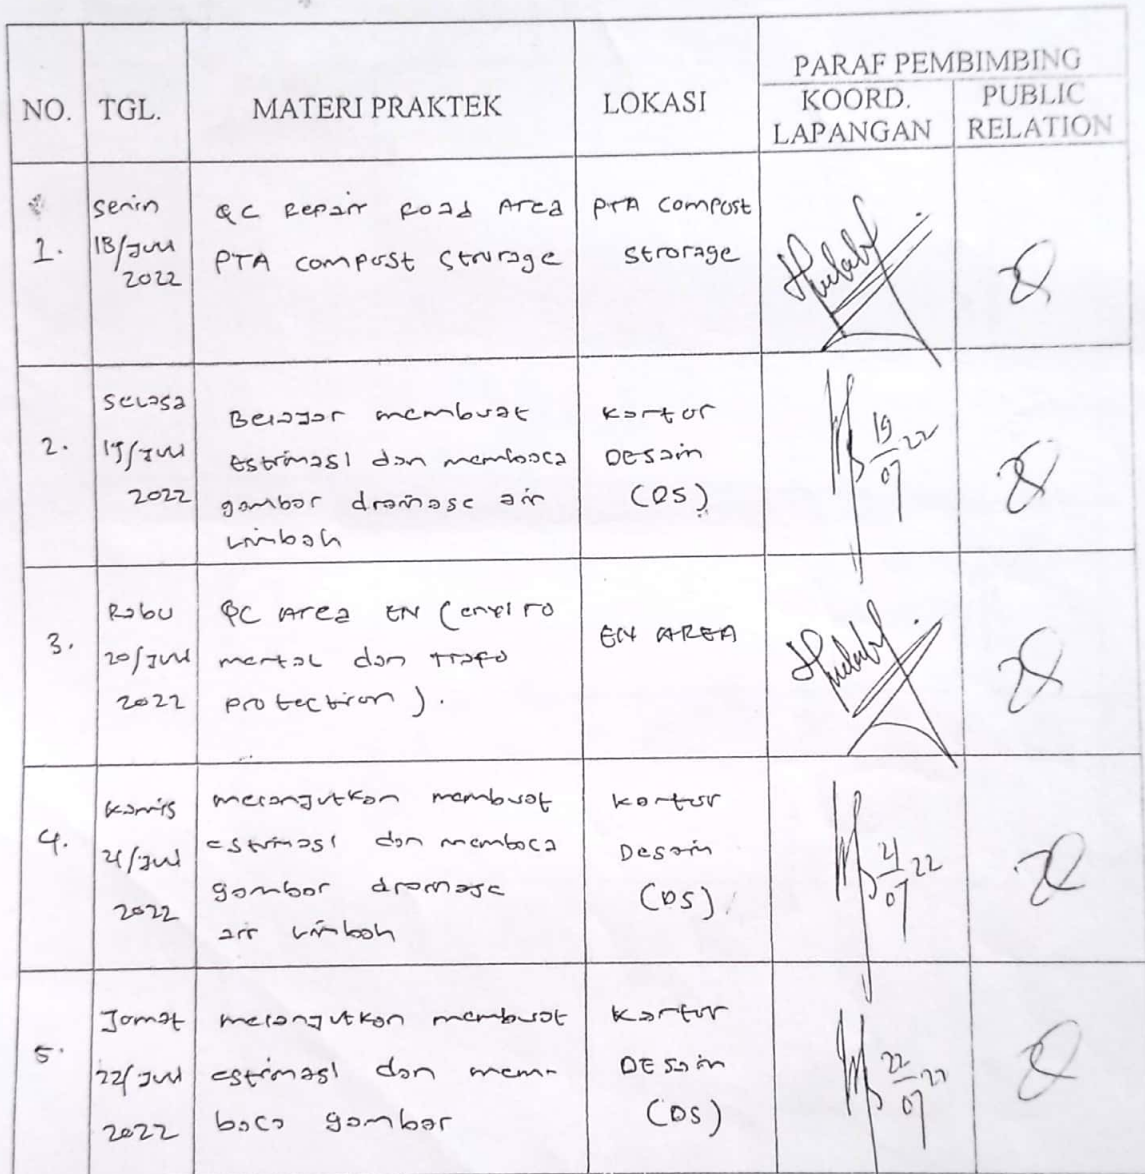 PARAF PEMBIMBING
NO. TGL. MATERI PRAKTEK LOKASI KOORD. LAPANGAN PUBLIC RELATION
1.
Senin
18/Juli
2022
QC Repair Road Area
PTA compost Strorage
PTA compost
Strorage
2.
Selasa
19/Juli
2022
Belajar membuat
Estimasi dan membaca
gambar drainase air
limbah
Kantor
Desain
(DS)
19/07 22
3.
Rabu
20/Juli
2022
QC Area EN (enviro
mental dan Trafo
protection).
EN AREA
4.
Kamis
21/Jul
2022
melanjutkan membuat
estimasi dan membaca
gambar drainase
air limbah
kantor
Desain
(DS)
21/07 22
5.
Jomat
22/Juli
2022
melanjutkan membuat
estimasi dan mem-
baca gambar
Kantor
DESain
(DS)
22/07 22